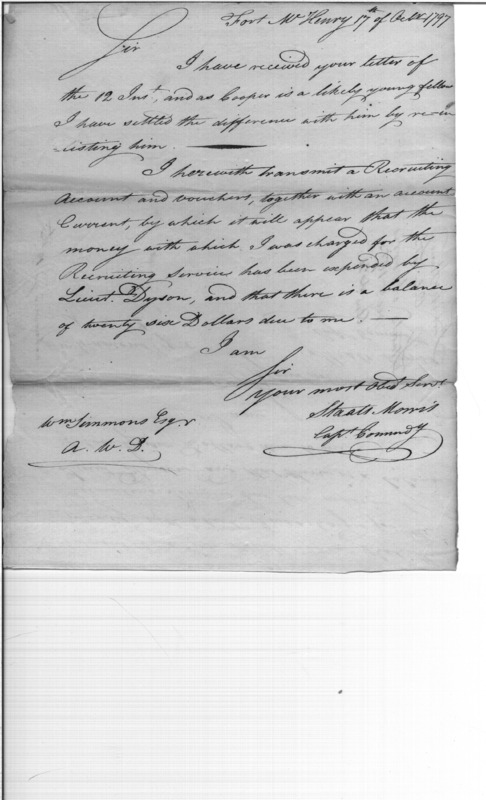 Fort Mc Henry 17th of Octr 1797
Sir
I have received your letter of
the 12 Inst, and as Cooper is a likely young fellow
I have settled the difference with him by re-en
-listing him.
I herewith transmit a Recruiting
Account and vouchers, together with an account
Current, by which it will appear that the
money with which I was charged for the
Recruiting Service has been expended by
Lieut. Dyson, and that there is a balance
of twenty six Dollars due to me.
I am
Sir
your most Obdt Servt
Staats Morris
Capt Commdg
Wm Simmons Esqr
A. W. D.